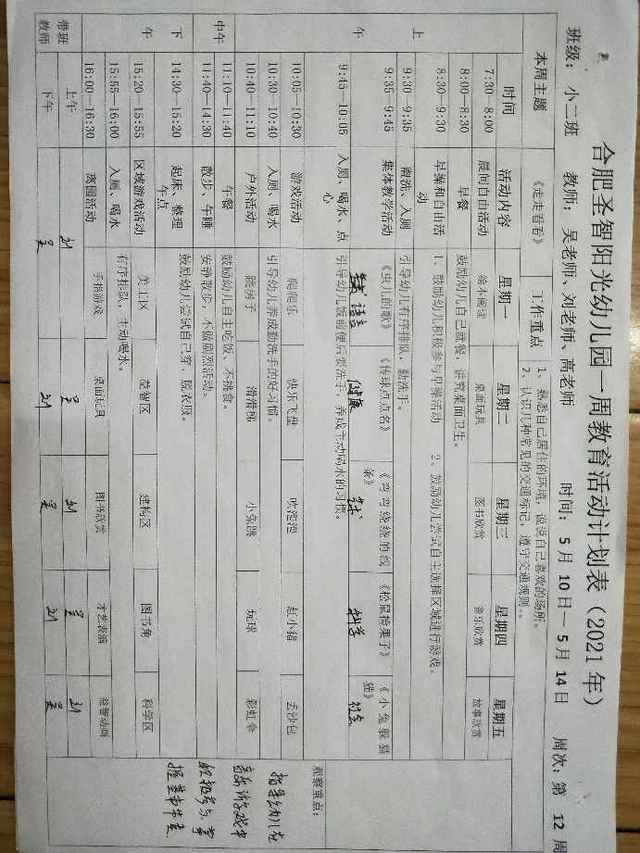 合肥圣智阳光幼儿园一周教育活动计划表（2021年）
班级：小二班 教师：吴老师、刘老师、高老师 时间：5月10日—5月14日 周次：第 12 周
本周主题 《走走看看》 工作重点 1、熟悉自己居住的环境，说说自己喜欢的场所。
2、认识几种常见的交通标记，遵守交通规则。
时间 活动内容 星期一 星期二 星期三 星期四 星期五
上午
7:30—8:00 晨间自由活动 绘本阅读 桌面玩具 图书欣赏 音乐欣赏 故事欣赏
8:00—8:30 早餐 鼓励幼儿自己就餐，讲究桌面卫生。
8:30—9:30 早操和自由活动 1、鼓励幼儿积极参与早操活动 2、鼓励幼儿尝试自主选择区域进行游戏。
9:30—9:35 盥洗、入厕 引导幼儿有序排队，勤洗手。
9:35—9:45 集体教学活动 《虫儿的歌》 《传球点点名》 《弯弯绕绕的线条》 《松鼠捡果子》 《小兔躲猫猫》
语言 健康 科学
9:45—10:05 入厕、喝水、点心 引导幼儿饭前便后要洗手，养成主动喝水的习惯。
10:05—10:30 游戏活动 爬爬乐 快乐飞盘 吹泡泡 赶小猪 丢沙包
10:30—10:40 入厕、喝水 引导幼儿养成勤洗手的好习惯。
10:40—11:10 户外活动 跳房子 滑滑梯 小兔跳 玩球 彩虹伞
中午
11:10—11:40 午餐 鼓励幼儿自主吃饭、不挑食。
11:40—14:30 散步、午睡 安静散步，不做剧烈活动。
下午
14:30—15:20 起床、整理 午点 鼓励幼儿尝试自己穿、脱衣服。
15:20—15:55 区域游戏活动 美工区 益智区 建构区 图书角 科学区
15:55—16:00 入厕、喝水 有序排队，主动喝水。
16:00—16:30 离园活动 手指游戏 桌面玩具 图书欣赏 才艺表演 益智动画
带班教师
上午 刘 吴 刘 吴 刘
下午 吴 刘 吴 刘 吴
观察重点：
指导幼儿在
音乐游戏中
积极参与，掌
握基本节奏